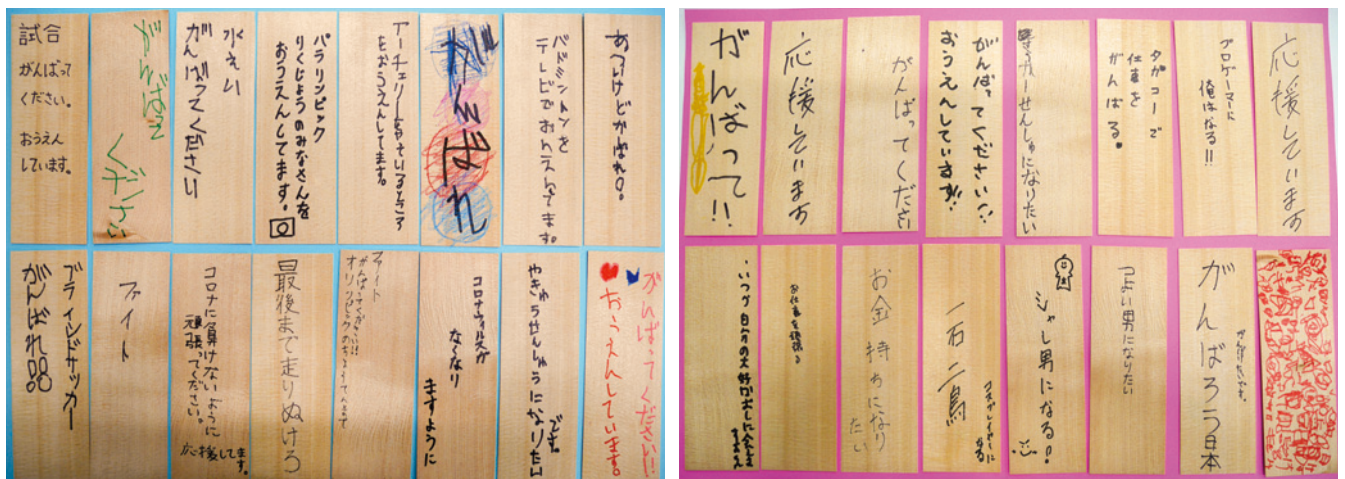 試合
がんばって
ください。
おうえん
しています。
がんばって
ください
水えい
がんばってください
パラリンピック
りくじょうのみなさんを
おうえんしてます。
アーチェリーをやっているところ
をおうえんしてます。
がんばれ
バドミントンを
テレビでおうえんしてます。
あついけどがんばれ!
ブラインドサッカー
がんばれ!!!
ファイト
コロナに負けないように
頑張ってください。
応援してます。
最後まで走りぬけろ
ファイト
がんばってください!!
コロナウィルスが
なくなり
ますように
やきゅうせんしゅうになりたい
です。
がんばってください!!
おうえんしています。
がんばって!!
応援しています
がんばってください
がんばってください!!
おうえんしています!!
サッカーせんしゅになりたい
タガコーで
仕事を
がんばる。
プロゲーマーに
俺はなる!!
応援しています
お仕事を頑張る
お金持ちになり
たい
一石二鳥
コスプレイヤーに
なる
シャレ男になる!
つよい男になりたい
がんばろう日本